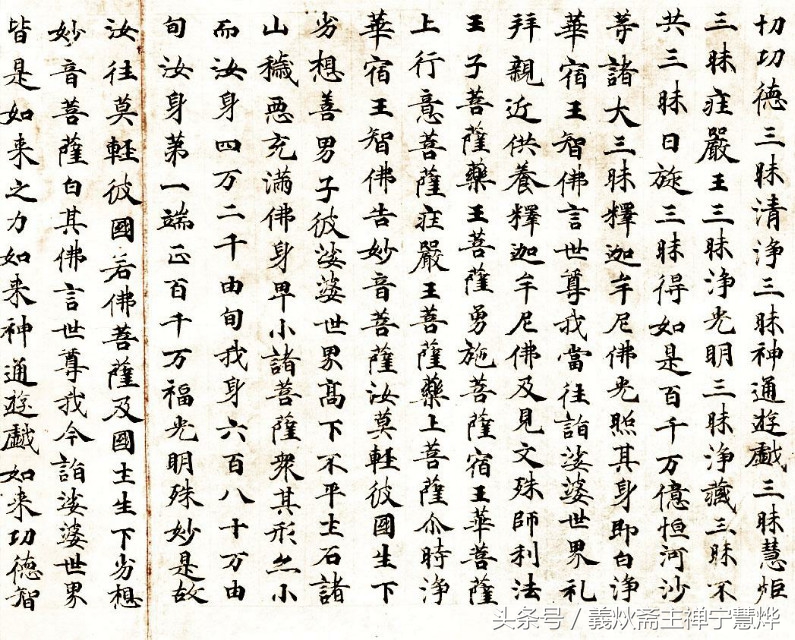 切功德三昧清淨三昧神通遊戲三昧慧炬
三昧莊嚴王三昧淨光明三昧淨藏三昧不
共三昧日旋三昧得如是百千万億恒河沙
等諸大三昧釋迦牟尼佛光照其身即白淨
華宿王智佛言世尊我當往詣娑婆世界礼
拜親近供養釋迦牟尼佛及見文殊師利法
王子菩薩藥王菩薩勇施菩薩宿王華菩薩
上行意菩薩莊嚴王菩薩藥上菩薩尒時淨
華宿王智佛告妙音菩薩汝莫輕彼國生下
劣想善男子彼娑婆世界高下不平土石諸
山穢惡充滿佛身卑小諸菩薩衆其形亦小
而汝身四万二千由旬我身六百八十万由
旬汝身第一端正百千万福光明殊妙是故
汝往莫輕彼國若佛菩薩及國土生下劣想
妙音菩薩白其佛言世尊我今詣娑婆世界
皆是如来之力如来神通遊戲如来功德智
头条号 / 義炏斋主禅宁慧烨